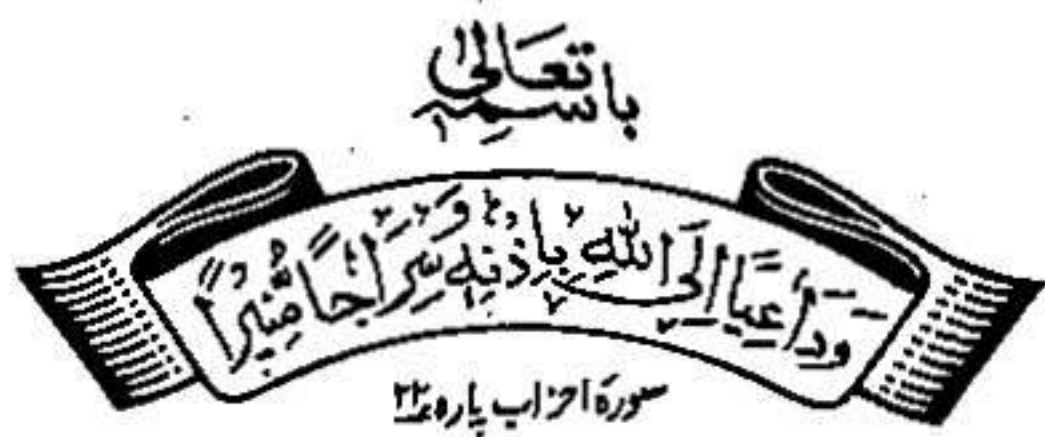 باسمہٖ تعالیٰ
وَدَاعِيًا اِلَى اللّٰهِ بِاِذْنِهٖ وَسِرَاجًا مُّنِيْرًا
سورۃ احزاب پارہ ۲۲